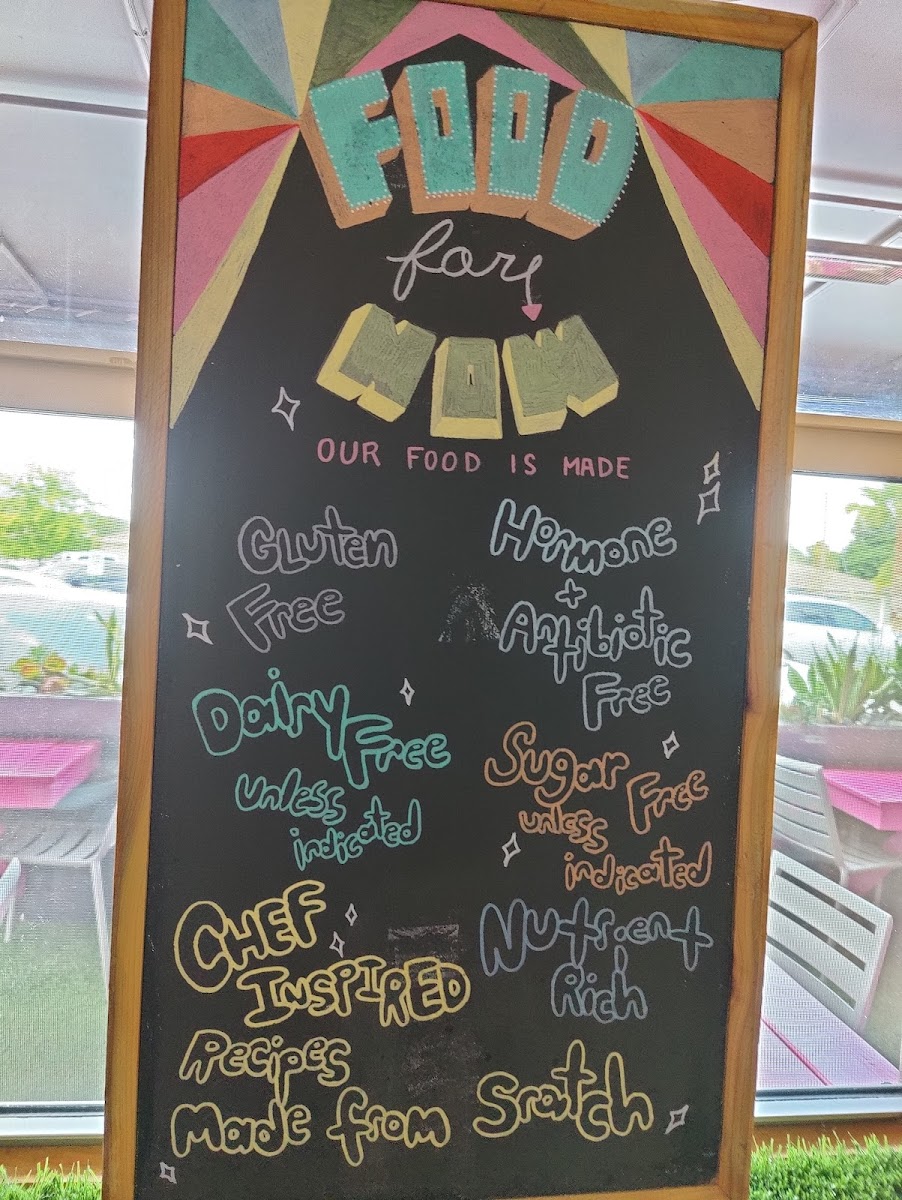 FOOD
for
NOW
OUR FOOD IS MADE
Gluten
Free
Hormone
+
Antibiotic
Free
Dairy
Free
unless
indicated
Sugar
Free
unless
indicated
CHEF
INSPIRED
Recipes
Made from Sratch
Nutrient
Rich